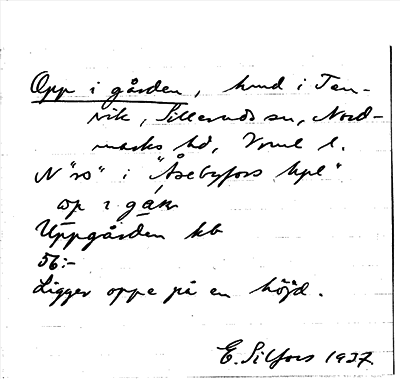 Opp i gården, hmd i Tan-
vik, Sillerud sn, Nord-
marks hd, Vrml l.
N "ro" i "Åsebyfors kpl"
op i gáḷn
Uppgården kb
56:-
Ligger oppe på en höjd.
E. Silfors 1927